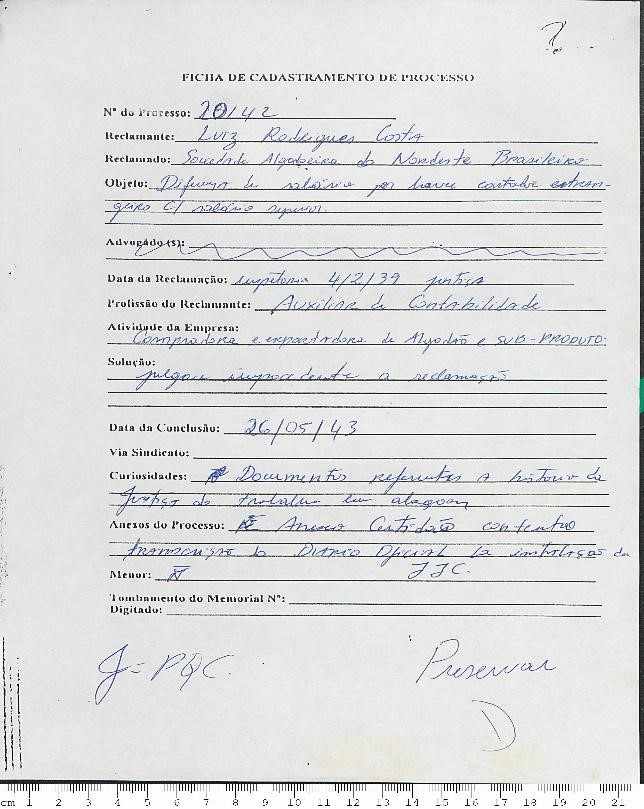 ?...
FICHA DE CADASTRAMENTO DE PROCESSO
Nº do Processo: 20/42
Reclamante: Luiz Rodrigues Costa
Reclamado: Sociedade Algodoeira do Nordeste Brasileiro
Objeto: Diferença de salário por haver contador estran-
geiro c/ salário superior.
Advogado(s):
Data da Reclamação: 4/2/39 justiça
Profissão do Reclamante: Auxiliar de Contabilidade
Atividade da Empresa:
Compradora e exportadora de Algodão e SUB-PRODUTO.
Solução:
julgou improcedente a reclamação
Data da Conclusão: 26/05/43
Via Sindicato:
Curiosidades: Documentos referentes a história da
Justiça do trabalho em alagoas
Anexos do Processo: Anexo Certidão contendo
transcrição do Diário Oficial da instalação da
Menor: JJC.
Tombamento do Memorial Nº:
Digitado:
J=PQC. Preservar
D
cm 1 2 3 4 5 6 7 8 9 10 11 12 13 14 15 16 17 18 19 20 21